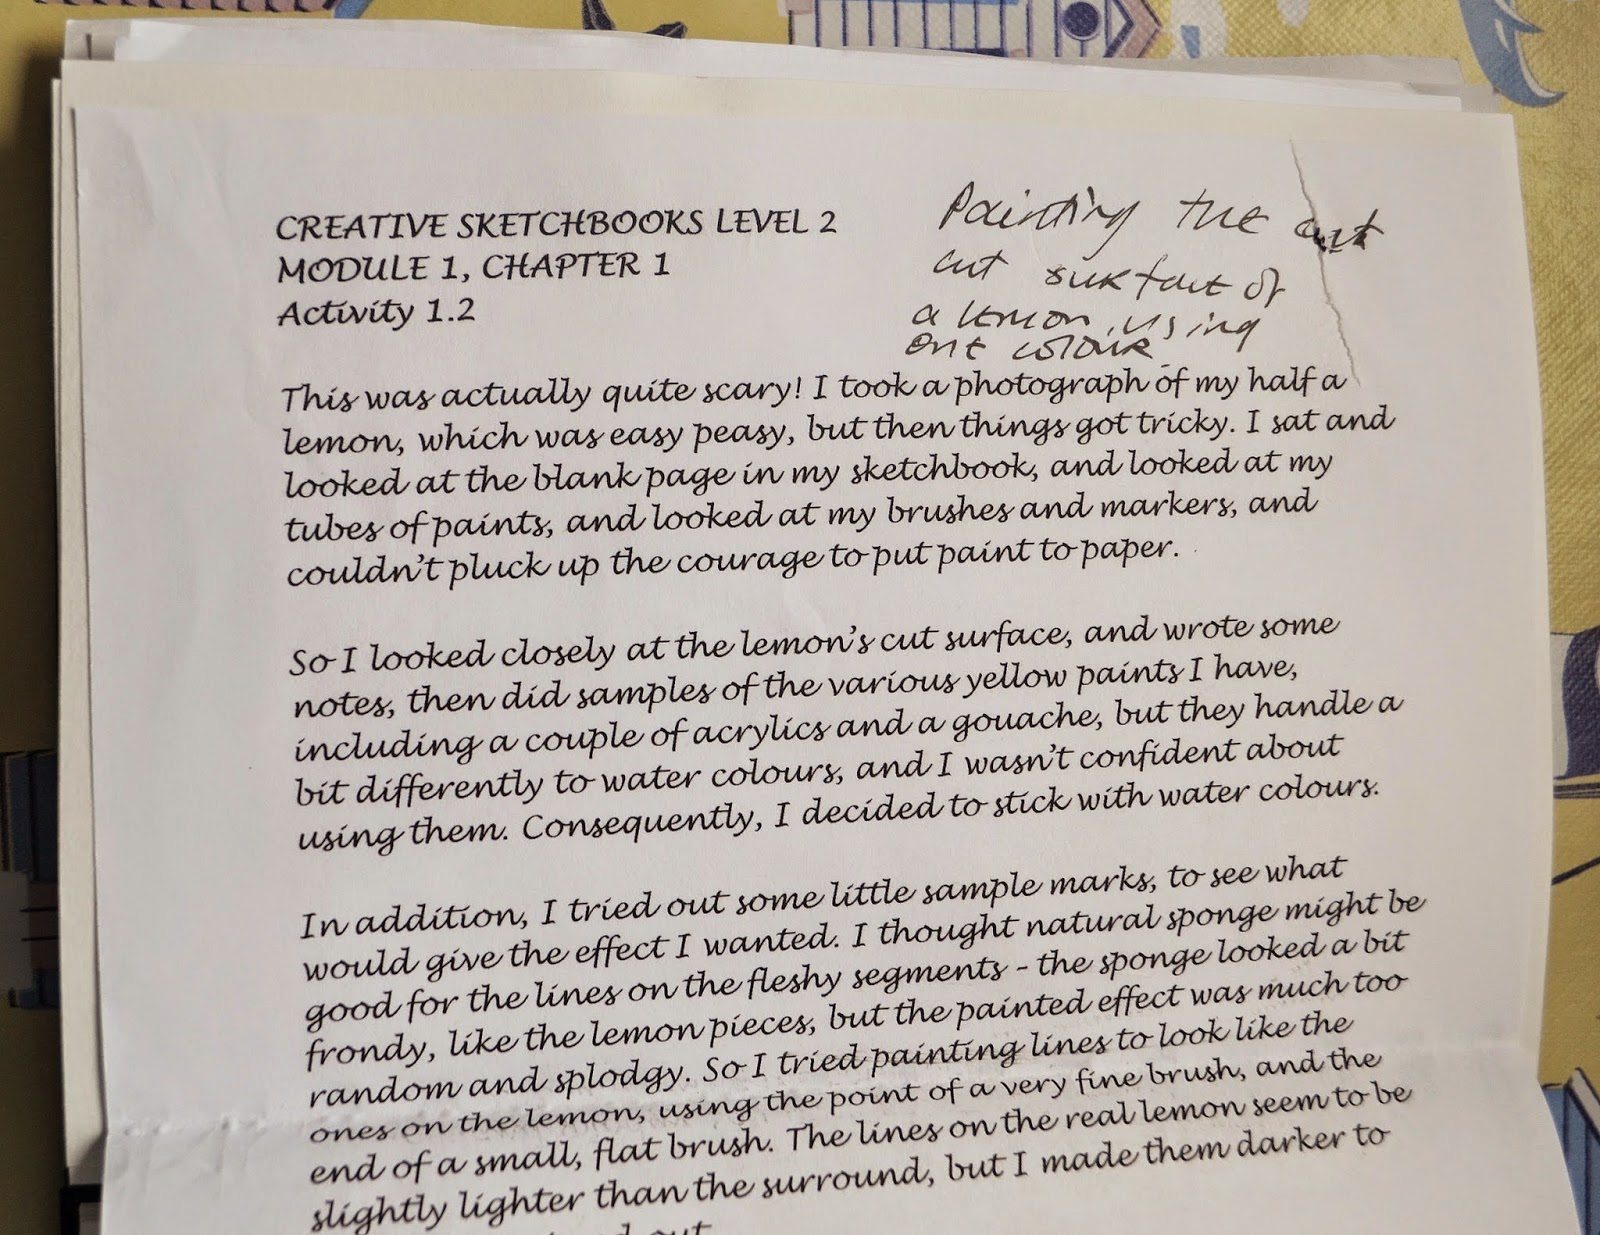 CREATIVE SKETCHBOOKS LEVEL 2
MODULE 1, CHAPTER 1
Activity 1.2
Painting the
cut surface of
a lemon, using
one colour
This was actually quite scary! I took a photograph of my half a
lemon, which was easy peasy, but then things got tricky. I sat and
looked at the blank page in my sketchbook, and looked at my
tubes of paints, and looked at my brushes and markers, and
couldn't pluck up the courage to put paint to paper.
So I looked closely at the lemon's cut surface, and wrote some
notes, then did samples of the various yellow paints I have,
including a couple of acrylics and a gouache, but they handle a
bit differently to water colours, and I wasn't confident about
using them. Consequently, I decided to stick with water colours.
In addition, I tried out some little sample marks, to see what
would give the effect I wanted. I thought natural sponge might be
good for the lines on the fleshy segments - the sponge looked a bit
frondy, like the lemon pieces, but the painted effect was much too
random and splodgy. So I tried painting lines to look like the
ones on the lemon, using the point of a very fine brush, and the
end of a small, flat brush. The lines on the real lemon seem to be
slightly lighter than the surround, but I made them darker to
out